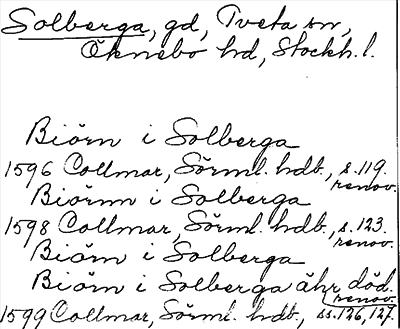 Solberga, gd, Tveta sn,
Öknebo hd, Stockh. l.
Biörn i Solberga
1596 Collmar, Sörml. hdb., s. 119.
renov.
Biörnn i Solberga
1598 Collmar, Sörml. hdb., s. 123.
renov.
Biörn i Solberga
Biörn i Solberga ähr död.
renov.
1599 Collmar, Sörml. hdb., ss. 126, 127.